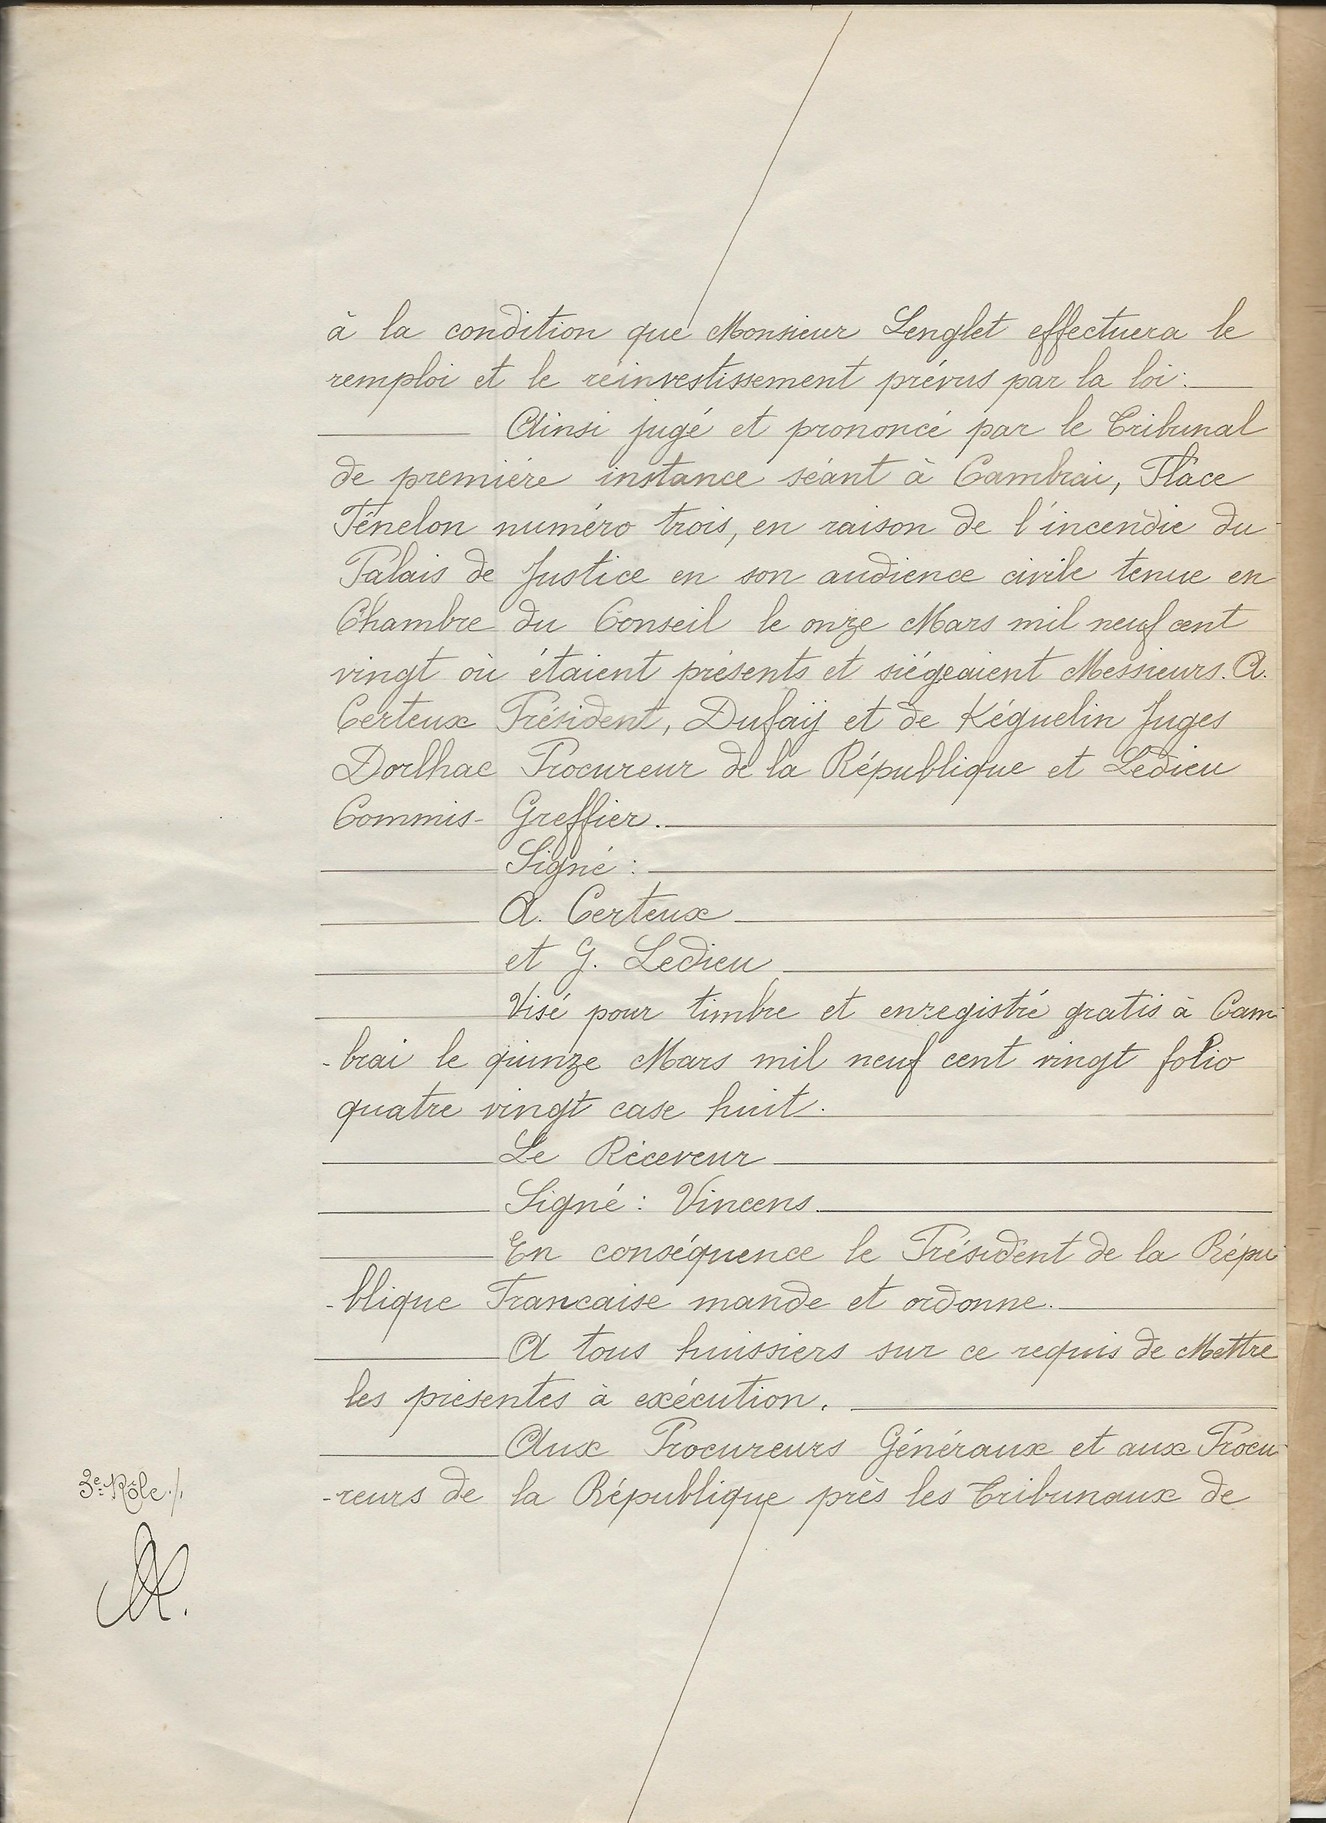 à la condition que Monsieur Lenglet effectuera le
remploi et le réinvestissement prévus par la loi.
Ainsi jugé et prononcé par le Tribunal
de première instance séant à Cambrai, Place
Fénelon numéro trois, en raison de l'incendie du
Palais de Justice en son audience civile tenue en
Chambre du Conseil le onze Mars mil neuf cent
vingt où étaient présents et siégeaient Messieurs. A.
Certeux Président, Dufaÿ et de Kéguelin Juges
Dorlhac Procureur de la République et Ledieu
Commis-Greffier.
Signé :
A. Certeux
et G. Ledieu
Visé pour timbre et enregistré gratis à Cam-
-brai le quinze Mars mil neuf cent vingt folio
quatre vingt case huit.
Le Receveur
Signé : Vincens
En conséquence le Président de la Répu-
-blique Francaise mande et ordonne.
A tous huissiers sur ce requis de Mettre
les présentes à exécution.
Aux Procureurs Généraux et aux Procu-
-reurs de la République près les Tribunaux de
3e Rôle./.